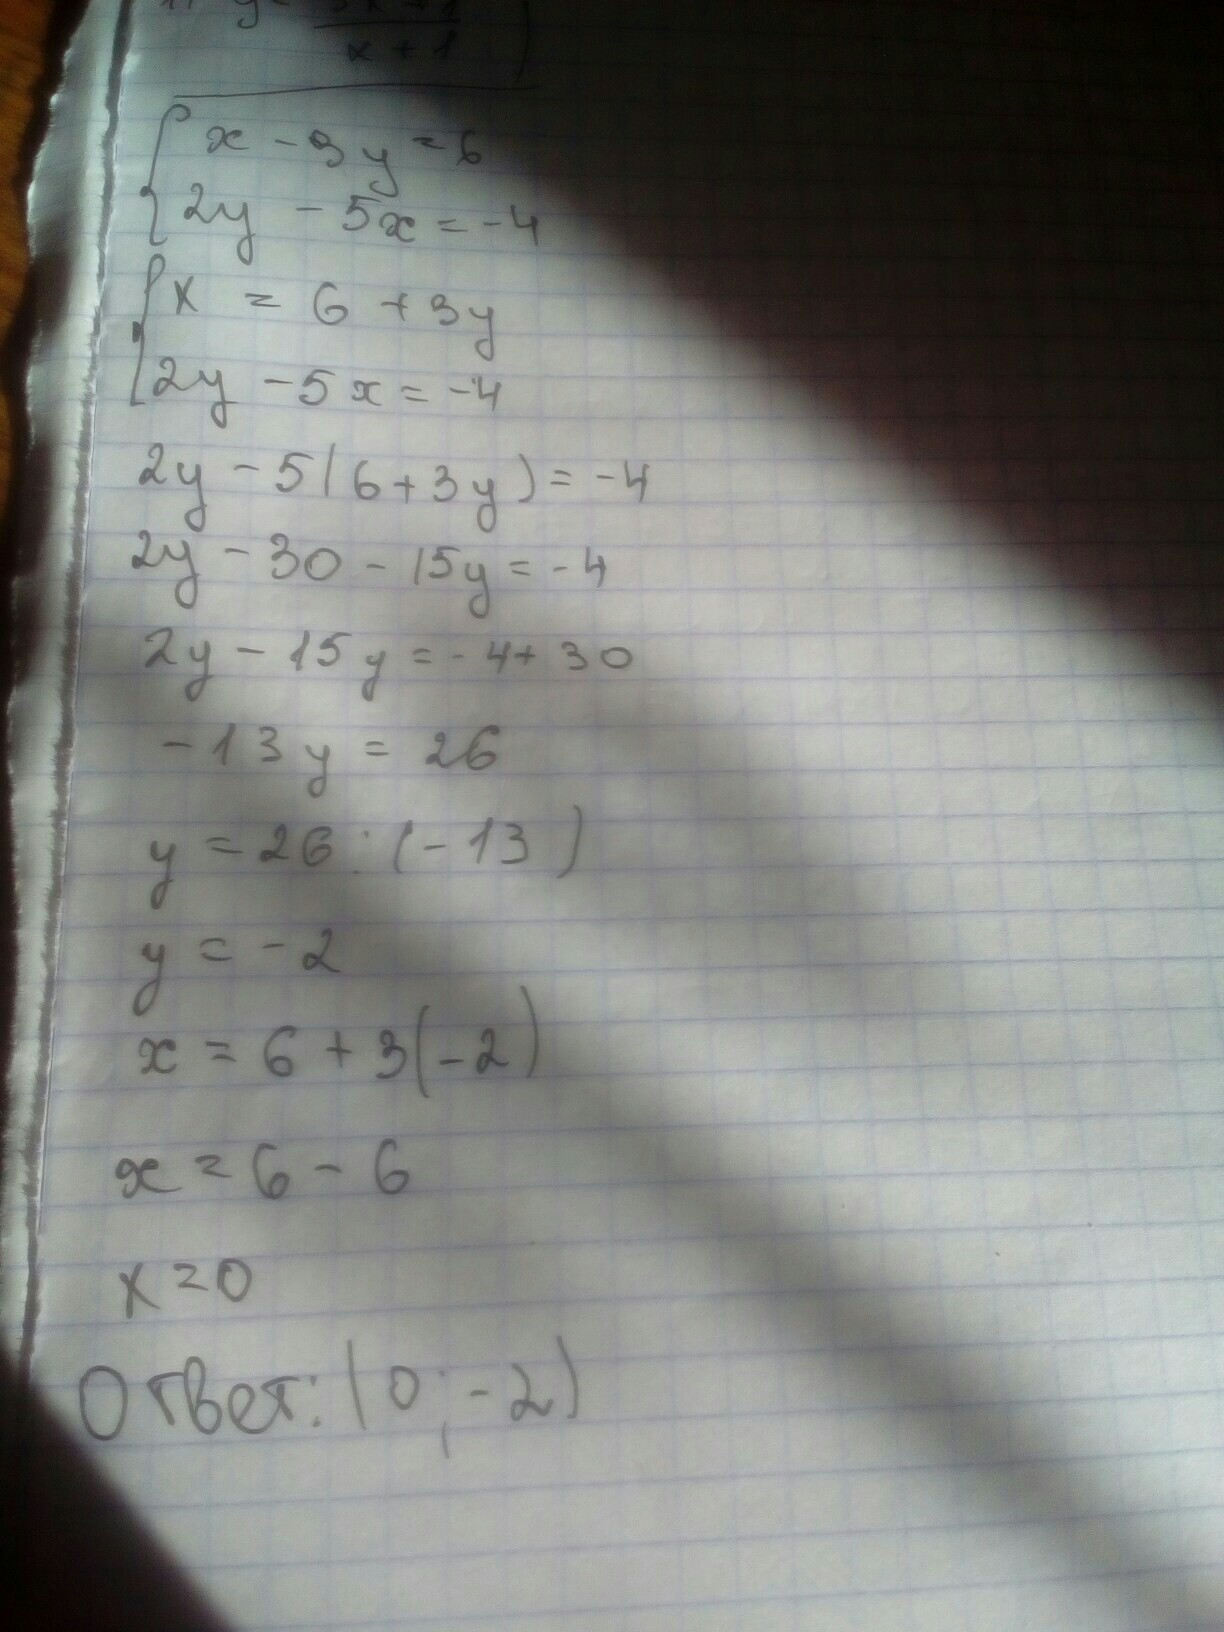 x + 1
x - 3y = 6
2y - 5x = -4
x = 6 + 3y
2y - 5x = -4
2y - 5(6 + 3y) = -4
2y - 30 - 15y = -4
2y - 15y = -4 + 30
-13y = 26
y = 26 : (-13)
y = -2
x = 6 + 3(-2)
x = 6 - 6
x = 0
Ответ: (0; -2)